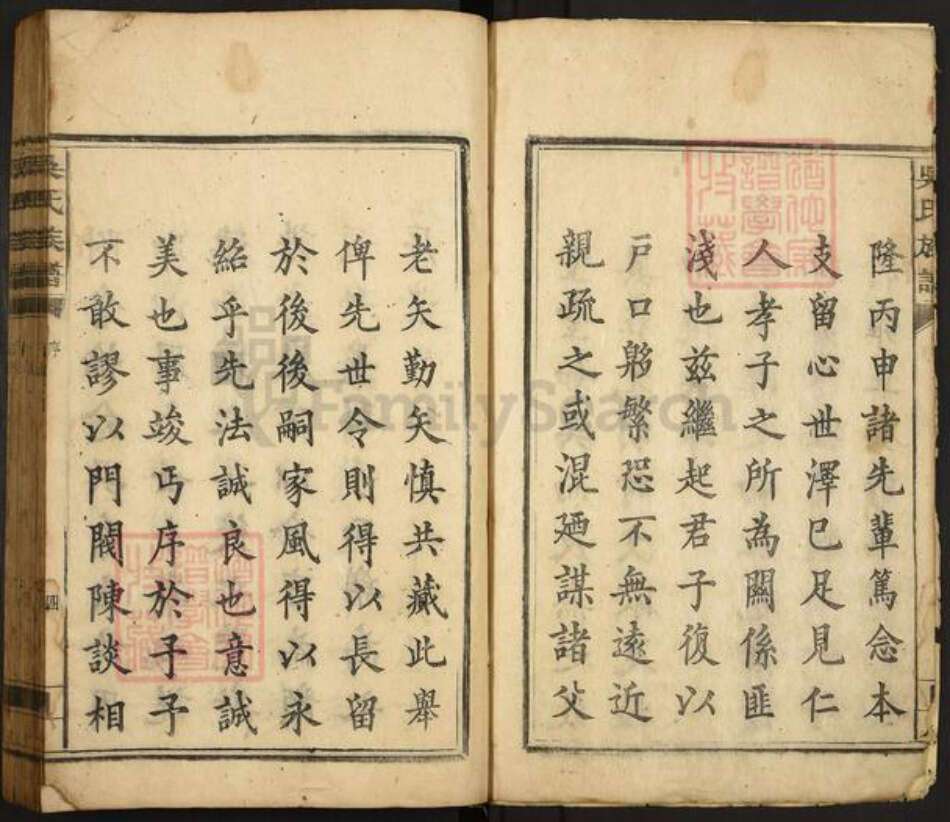 吳氏族譜
隆丙申諸先輩篤念本
支留心世澤已足見仁
人孝子之所為關係匪
淺也茲繼起君子復以
戶口夥繁恐不無遠近
親疏之或混廼謀諸父
老矢勤矢慎共藏此舉
俾先世令則得以長留
於後後嗣家風得以永
紹乎先法誠良也意誠
美也事竣丐序於予予
不敢謬以門閥陳談相
吳氏族譜
序
四
FamilySearch